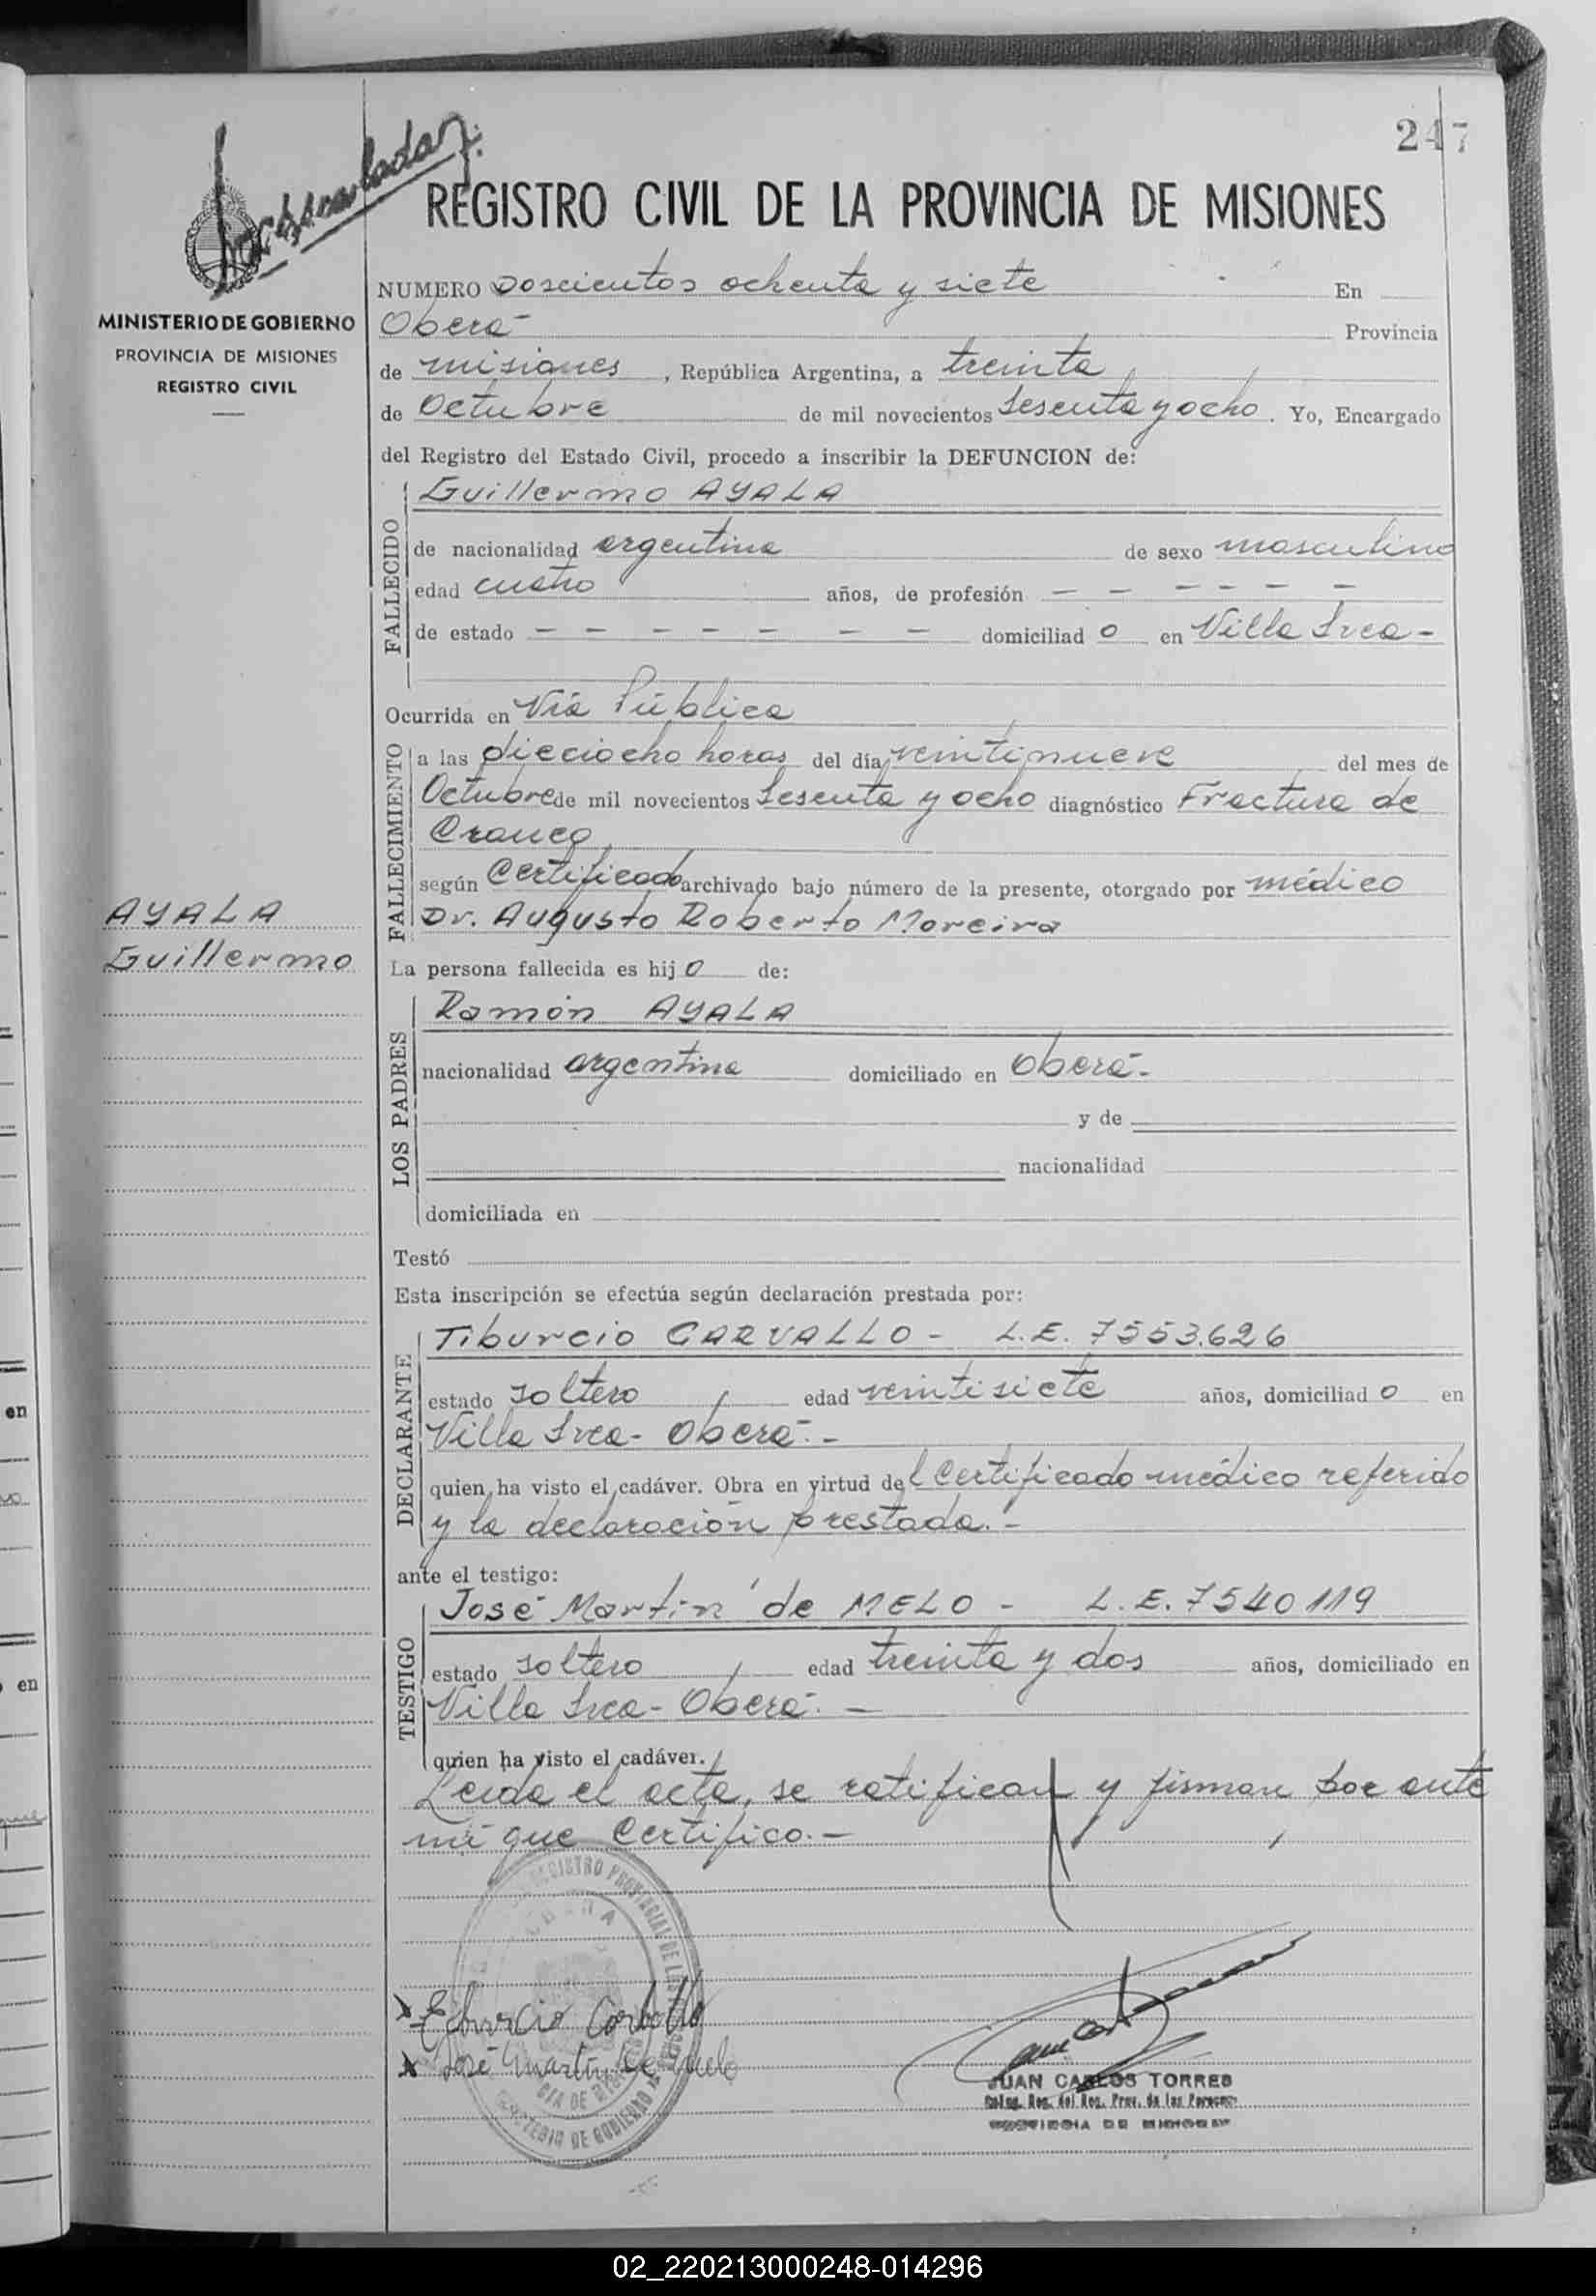 247
REGISTRO CIVIL DE LA PROVINCIA DE MISIONES
MINISTERIO DE GOBIERNO
PROVINCIA DE MISIONES
REGISTRO CIVIL
NUMERO Doscientos ochenta y siete En
Oberá Provincia
de misiones, República Argentina, a treinta
de Octubre de mil novecientos Sesenta y ocho. Yo, Encargado
del Registro del Estado Civil, procedo a inscribir la DEFUNCION de:
FALLECIDO
Guillermo AYALA
de nacionalidad argentina de sexo masculino
edad cuatro años, de profesión - - - - - -
de estado - - - - - - - domiciliado en Villa Svea-
Ocurrida en Vía Pública
FALLECIMIENTO
a las dieciocho horas del día veintinueve del mes de
Octubre de mil novecientos Sesenta y ocho diagnóstico Fractura de
Craneo
según Certificado archivado bajo número de la presente, otorgado por médico
Dr. Augusto Roberto Moreira
AYALA
Guillermo
La persona fallecida es hijo de:
LOS PADRES
Ramón AYALA
nacionalidad argentina domiciliado en Oberá-
y de
nacionalidad
domiciliada en
Testó
Esta inscripción se efectúa según declaración prestada por:
DECLARANTE
Tiburcio CARVALLO - L.E. 7553.626
estado soltero edad veintisiete años, domiciliado en
Villa Svea- Oberá.-
quien ha visto el cadáver. Obra en virtud del Certificado médico referido
y la declaración prestada.-
ante el testigo:
TESTIGO
José Martín de MELO - L.E. 7540119
estado soltero edad treinta y dos años, domiciliado en
Villa Svea- Oberá.-
quien ha visto el cadáver.
Leida el acta, se ratifican y firman por ante
mí que Certifico.-
JUAN CARLOS TORRES
02_220213000248-014296